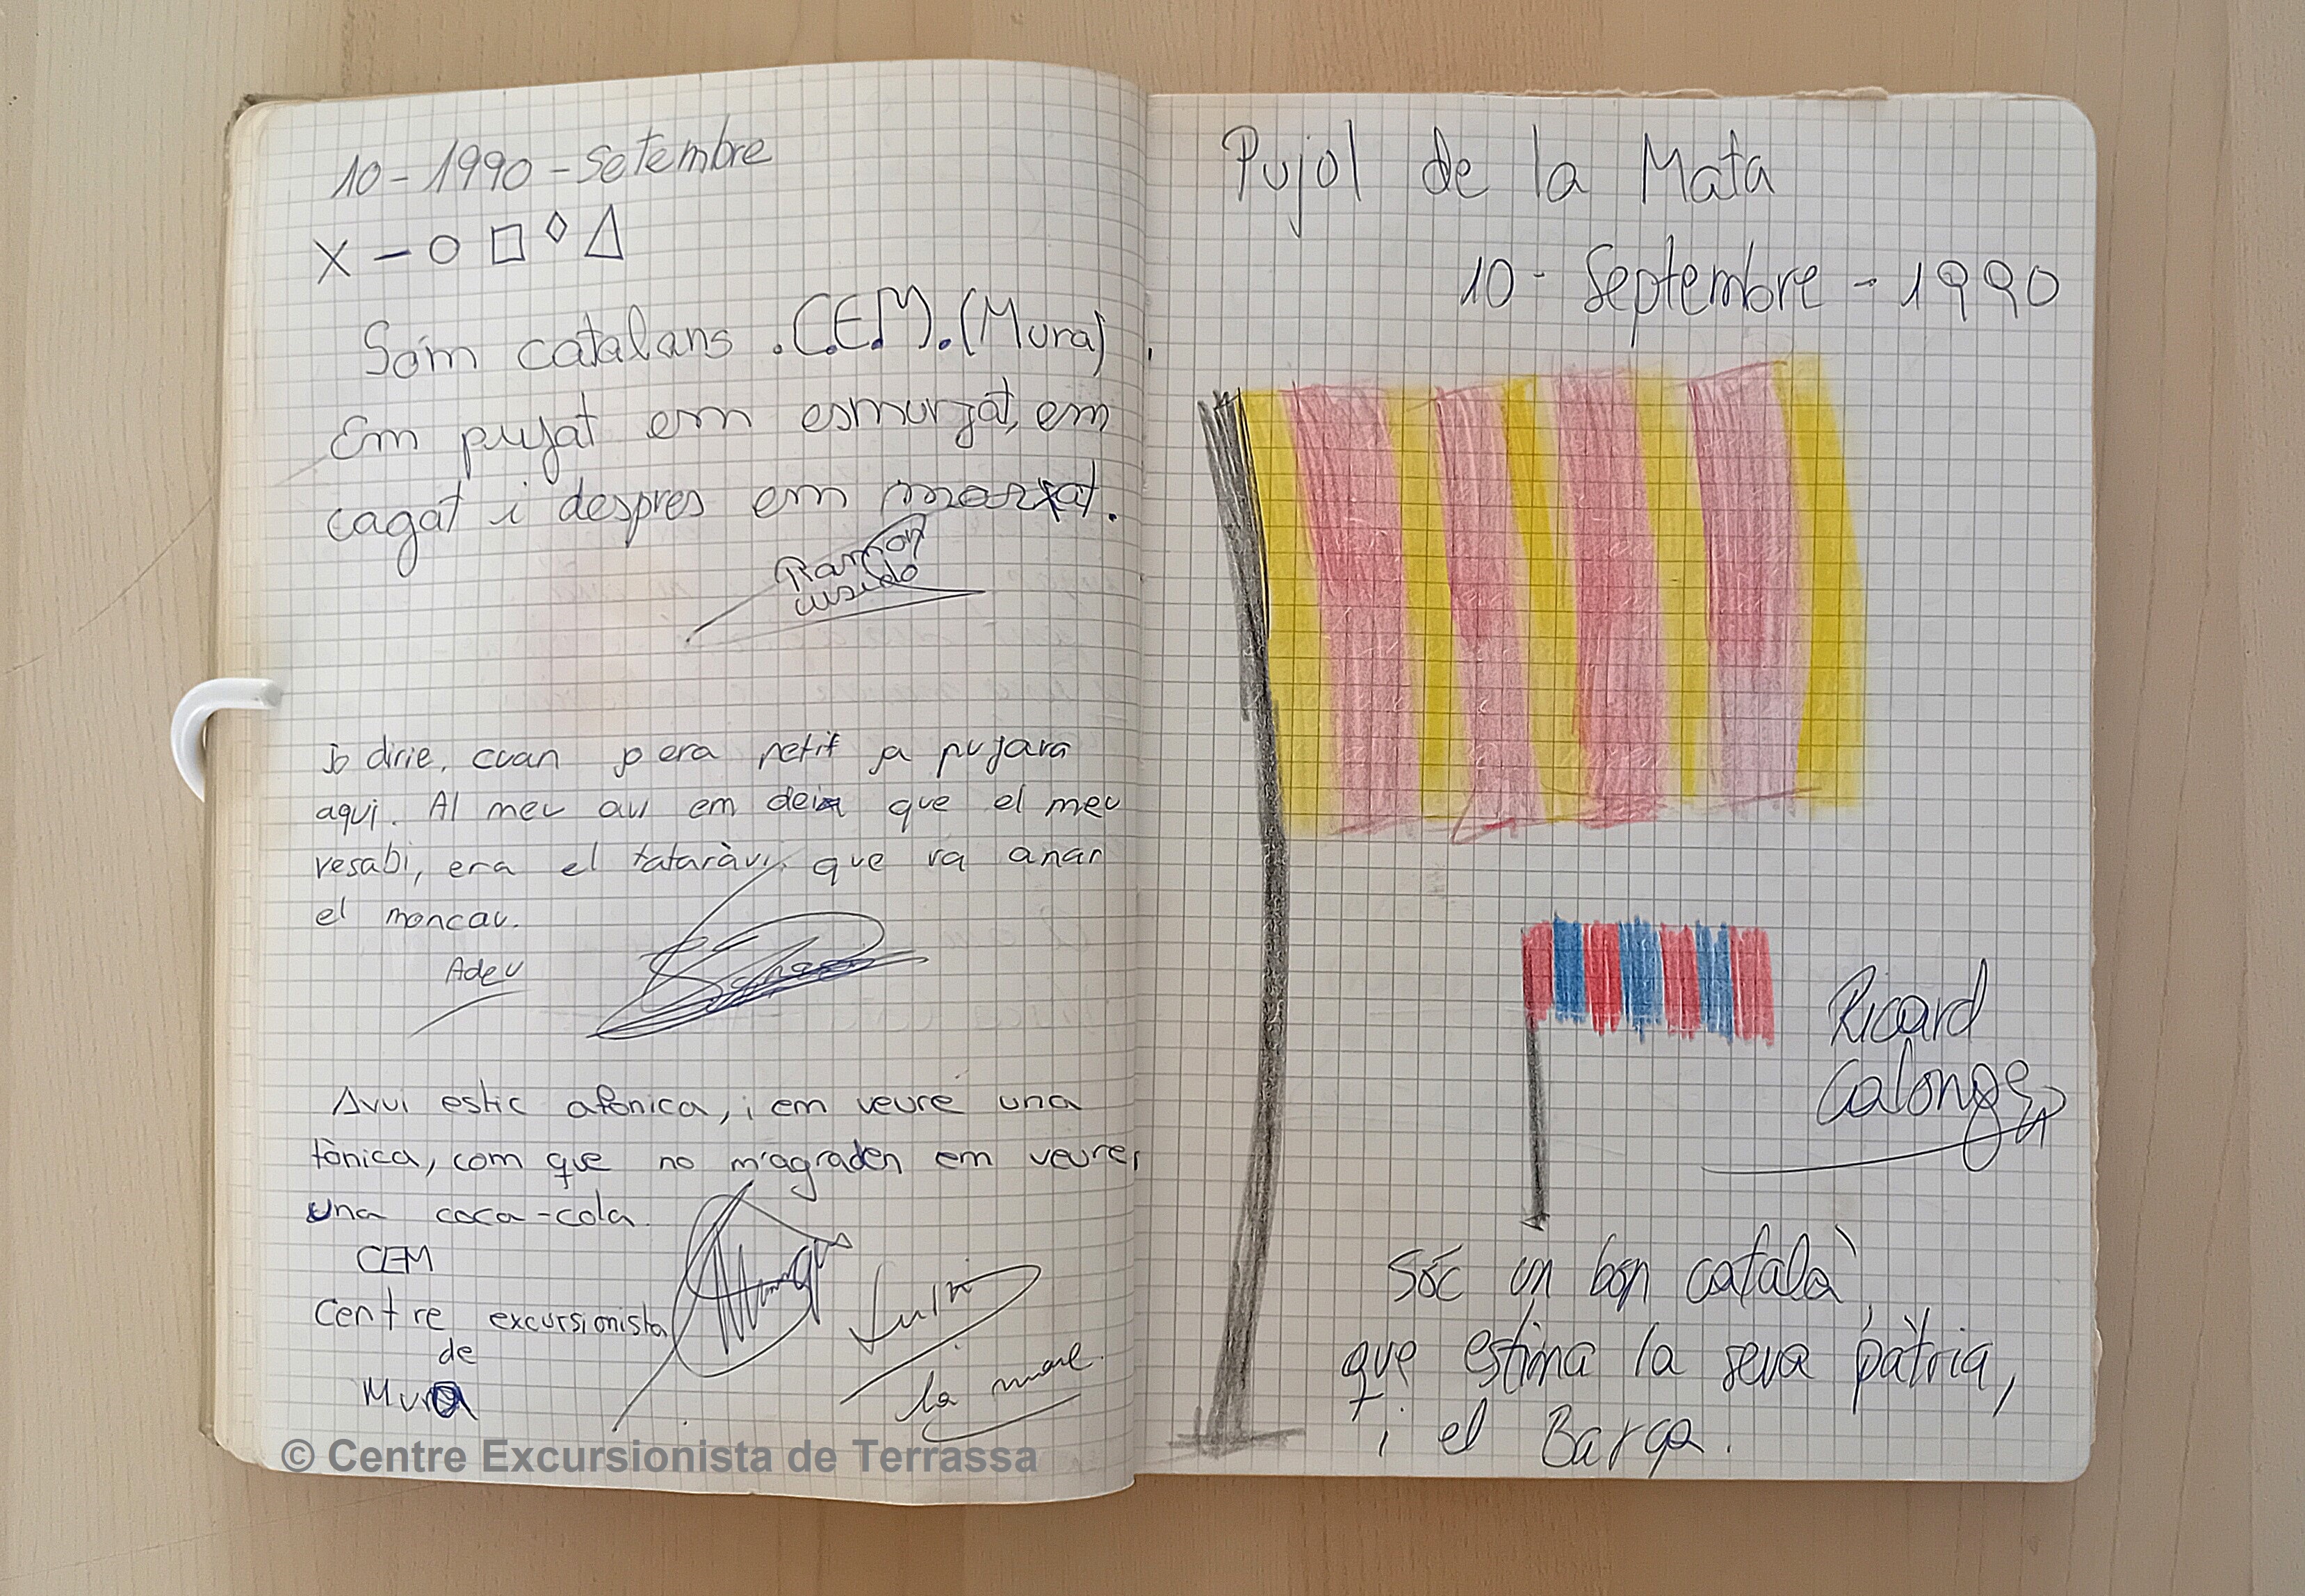 10-1990-Setembre
X - O □ ◊ △
Som catalans .C.E.M. (Mura)
Em pujat em esmurzat, em
cagat i despres em marxat.
Ramon
cusido
Jo dirie, cuan jo era petit ja pujara
aqui. Al meu avi em deia que el meu
vesabi, era el tataràvi, que va anar
el moncau.
Adeu
Avui estic afonica, i em veure una
tònica, com que no m'agraden em veure
una coca-cola.
CEM
Centre excursionista
de
Mura
la mare.
Pujol de la Mata
10 - Septembre - 1990
Ricard
Calonge
Sóc un bon català,
que estima la seva pàtria,
i el Barça.
© Centre Excursionista de Terrassa